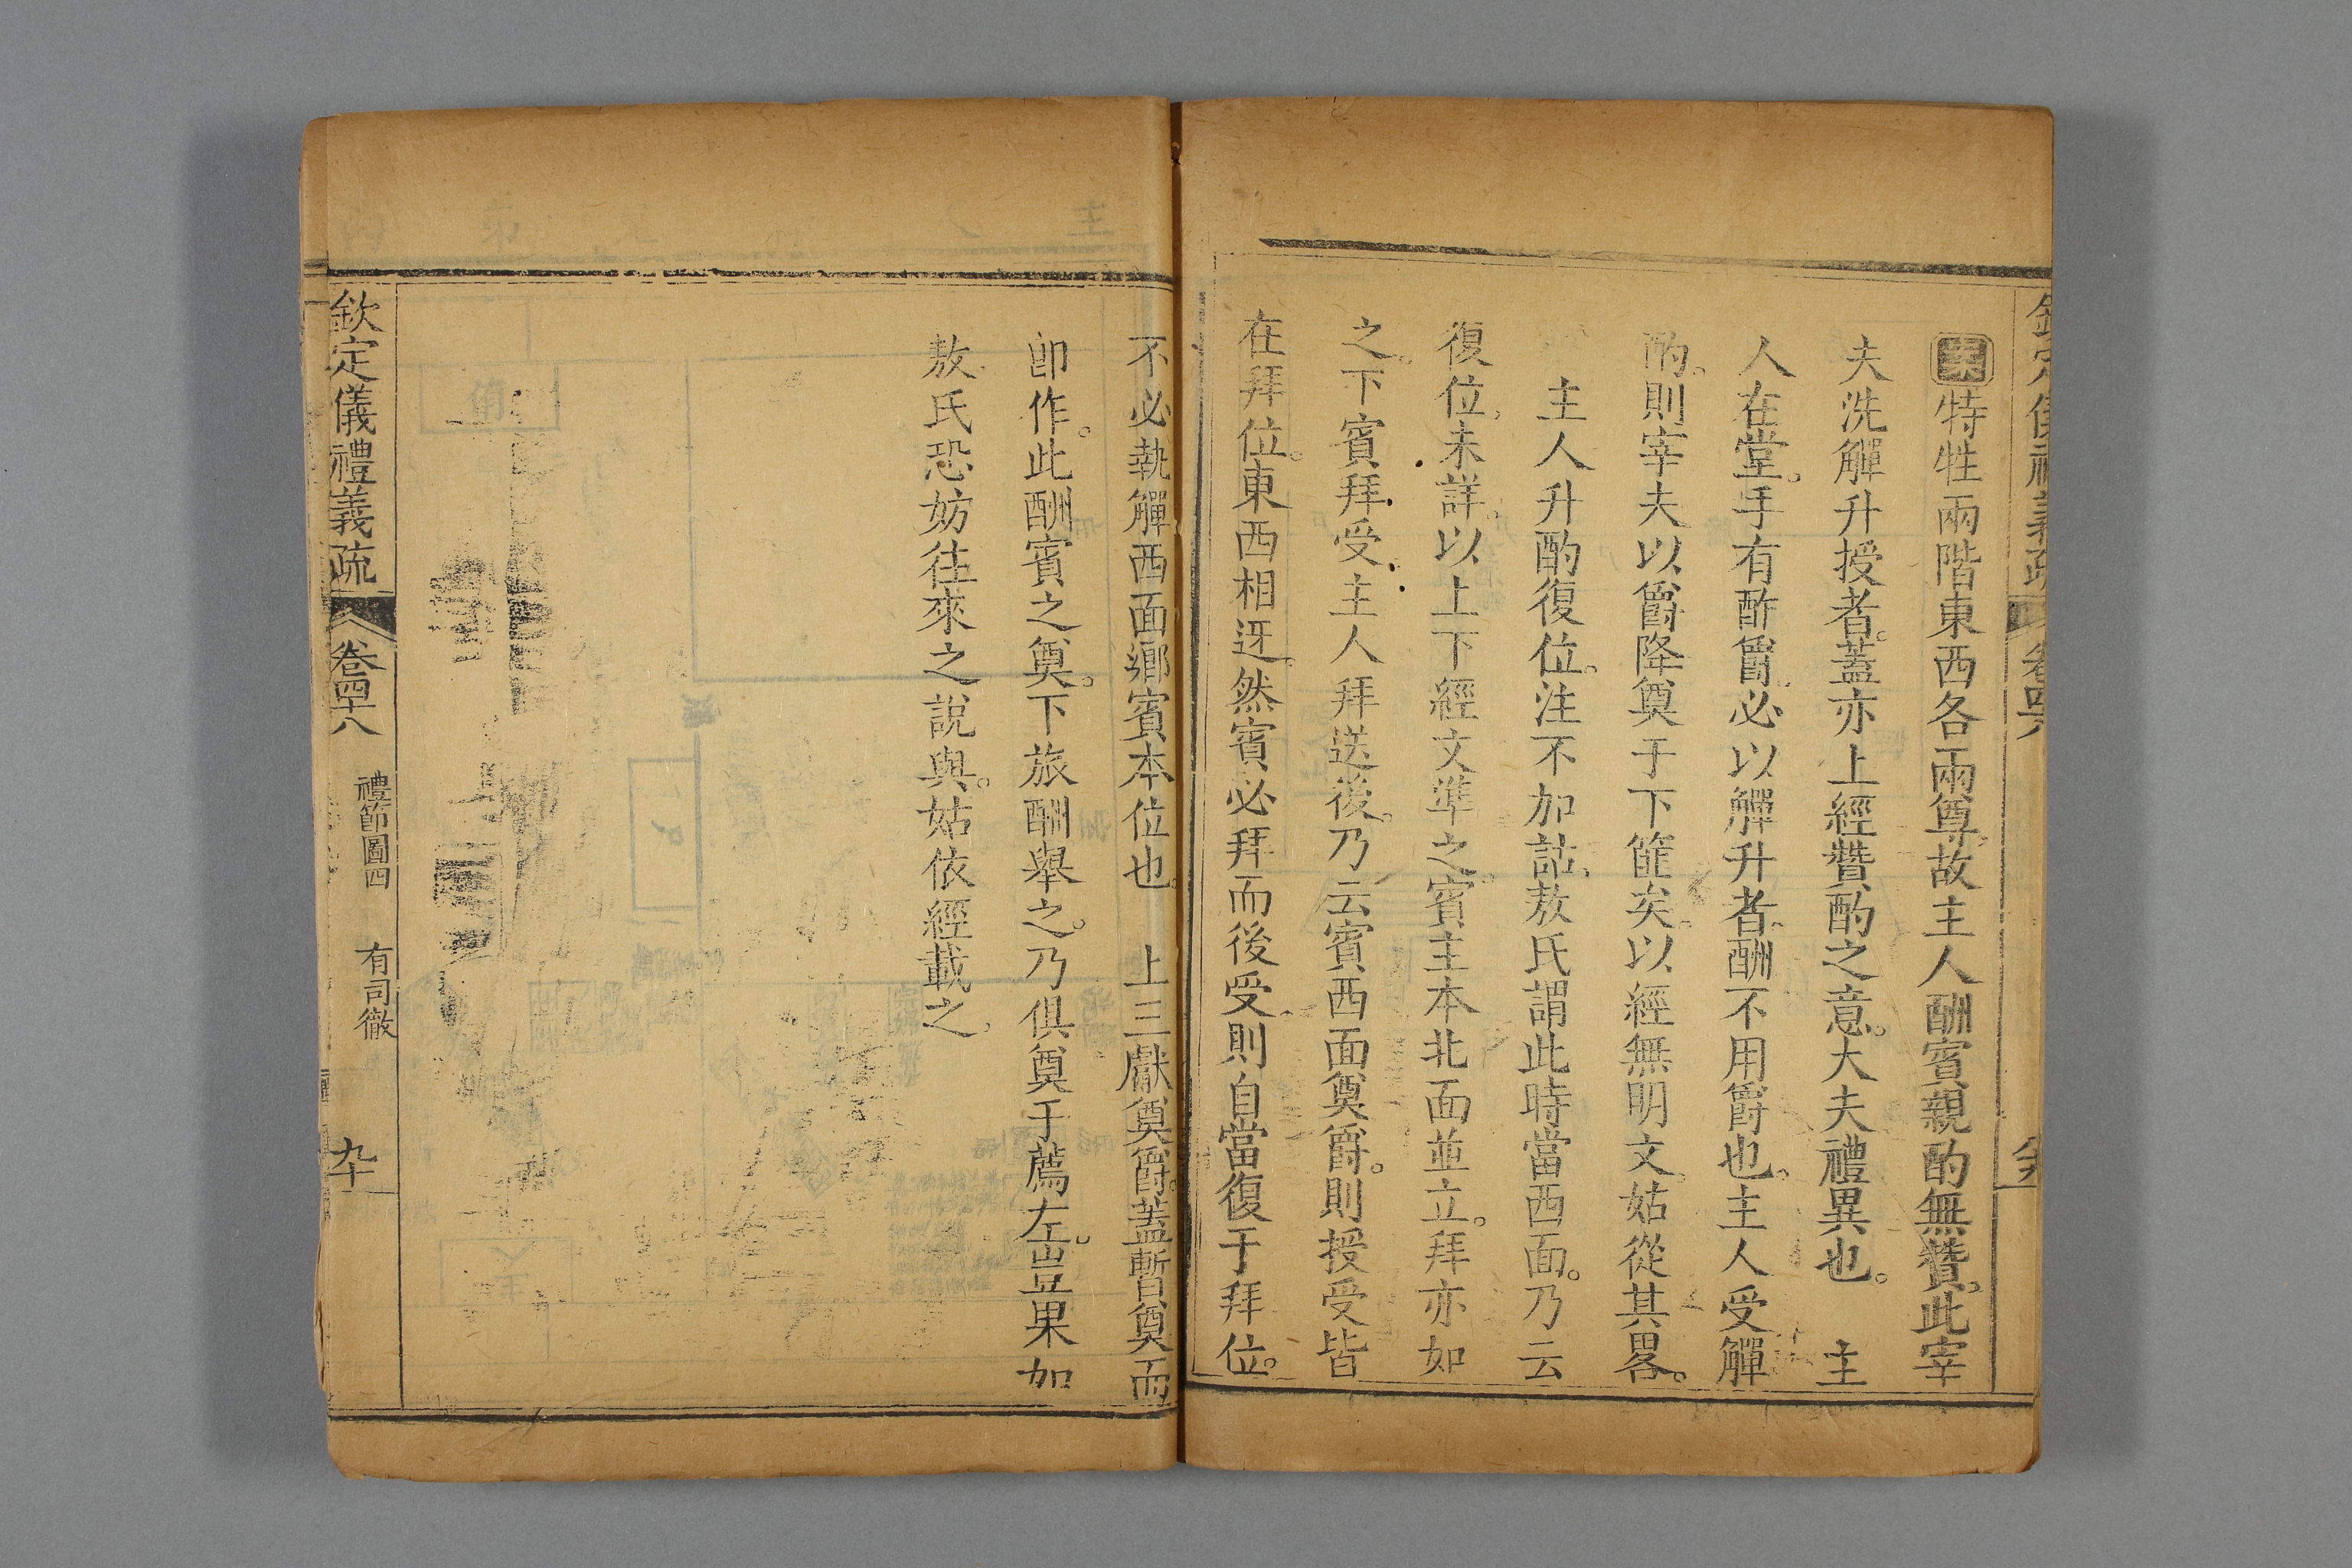 案特牲兩階東西各兩尊故主人酬賓親酌無贊。此宰
夫洗觶升授者。蓋亦上經贊酌之意。大夫禮異也。　主
人在堂。手有酢爵。必以觶升者。酬不用爵也。主人受觶
酌。則宰夫以爵降奠于下篚矣。以經無明文。姑從其畧。
主人升酌復位。注不加詁。敖氏謂此時當西面。乃云
復位。未詳。以上下經文準之。賓主本北面並立。拜亦如
之。下賓拜受主人拜送後。乃云賓西面奠爵。則授受皆
在拜位。東西相迓。然賓必拜而後受。則自當復于拜位。
不必執觶西面鄉賓本位也。　上三獻奠爵。蓋暫奠而
卽作。此酬賓之奠。下旅酬舉之。乃俱奠于薦左。豈果如
敖氏恐妨往來之說與。姑依經載之。
欽定儀禮義疏
卷四十八
禮節圖四
有司徹
九十